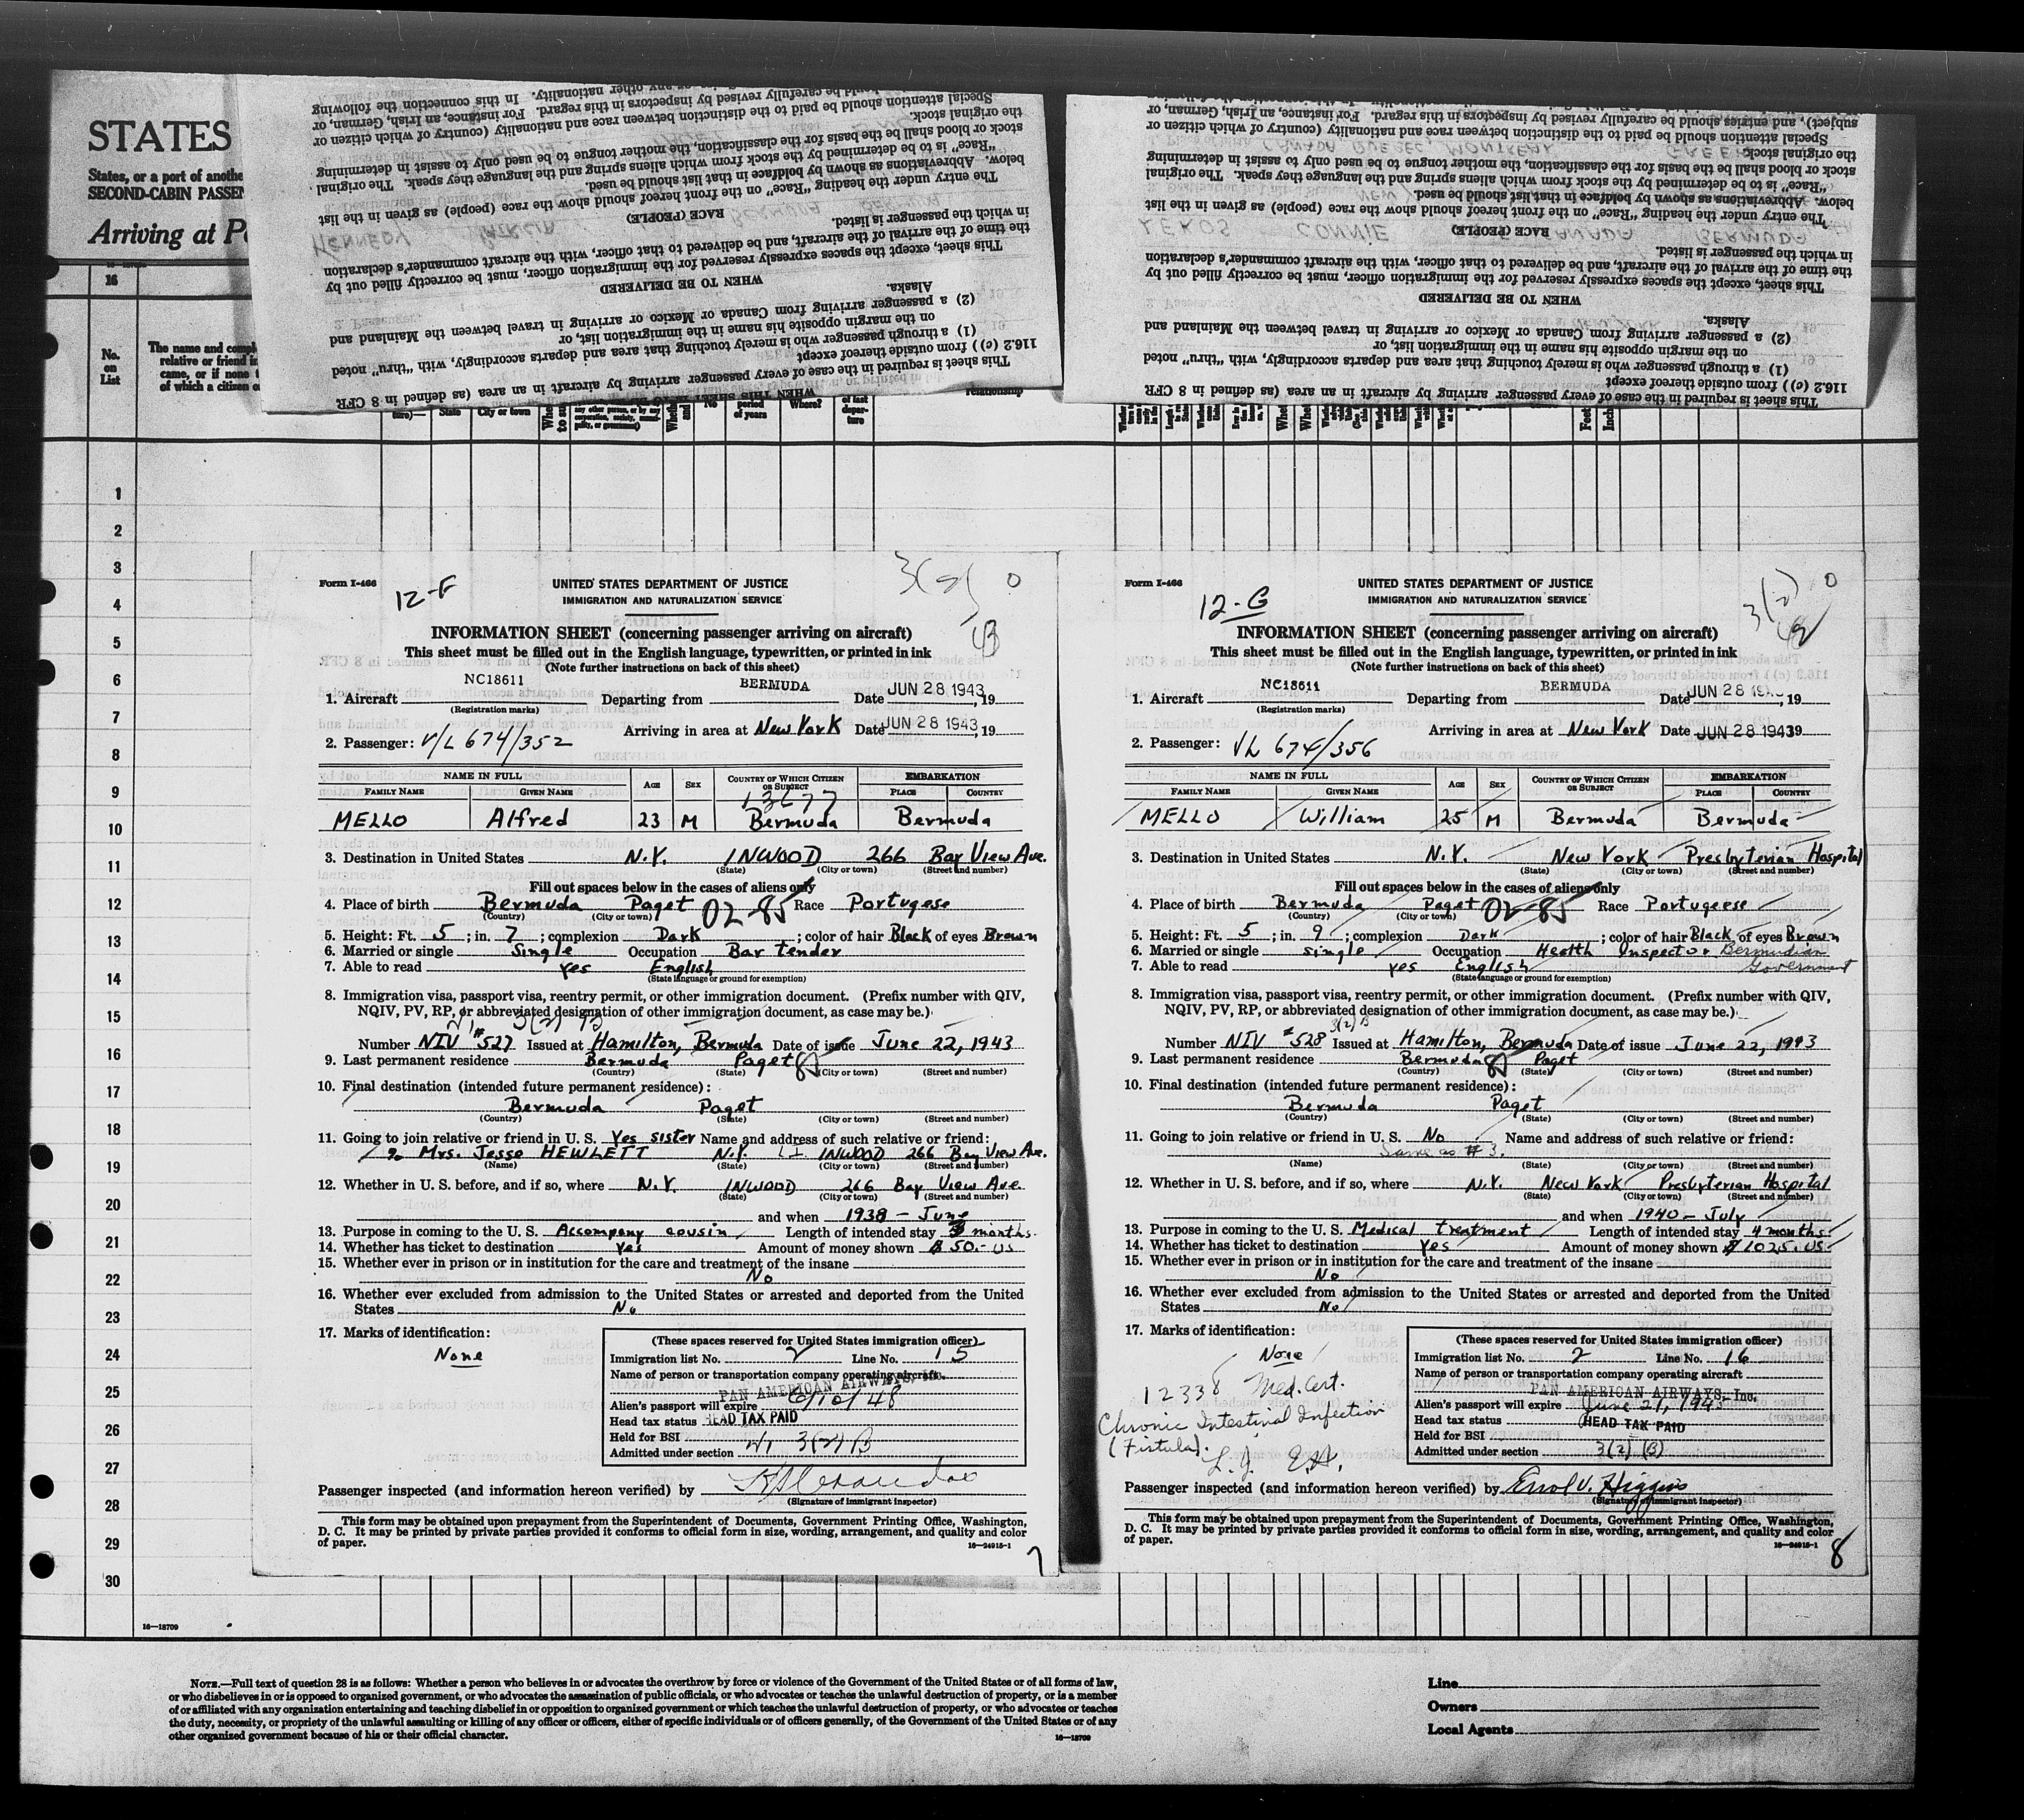 STATES
States, or a port of anothe
SECOND-CABIN PASSEN
Arriving at P
16
No. on List
The name and compl
relative or friend in
came, or if none
of which a citizen o
This sheet is required in the case of every passenger arriving by aircraft in an area (as defined in 8 CFR
116.2 (c) ) from outside thereof except
(1) a through passenger who is merely touching that area and departs accordingly, with "thru" noted
on the margin opposite his name in the immigration list, or
(2) a passenger arriving from Canada or Mexico or arriving in travel between the Mainland and
Alaska.
WHEN TO BE DELIVERED
This sheet, except the spaces expressly reserved for the immigration officer, must be correctly filled out by
the time of the arrival of the aircraft, and be delivered to that officer, with the aircraft commander's declaration
in which the passenger is listed.
RACE (PEOPLE)
The entry under the heading "Race" on the front hereof should show the race (people) as given in the list
below. Abbreviations as shown by boldface in that list should be used. The original
"Race" is to be determined by the stock from which aliens spring and the language they speak. The original
stock or blood shall be the basis for the classification, the mother tongue to be used only to assist in determining
the original stock.
Special attention should be paid to the distinction between race and nationality (country of which citizen or
should be carefully revised by inspectors in this regard. For instance, an Irish, German, or
any other nationality. In this connection the following
This sheet is required in the case of every passenger arriving by aircraft in an area (as defined in 8 CFR
116.2 (c) ) from outside thereof except
(1) a through passenger who is merely touching that area and departs accordingly, with "thru" noted
on the margin opposite his name in the immigration list, or
(2) a passenger arriving from Canada or Mexico or arriving in travel between the Mainland and
Alaska.
WHEN TO BE DELIVERED
This sheet, except the spaces expressly reserved for the immigration officer, must be correctly filled out by
the time of the arrival of the aircraft, and be delivered to that officer, with the aircraft commander's declaration
in which the passenger is listed.
RACE (PEOPLE)
The entry under the heading "Race" on the front hereof should show the race (people) as given in the list
below. Abbreviations as shown by boldface in that list should be used.
"Race" is to be determined by the stock from which aliens spring and the language they speak. The original
stock or blood shall be the basis for the classification, the mother tongue to be used only to assist in determining
the original stock.
Special attention should be paid to the distinction between race and nationality (country of which citizen or
subject), and entries should be carefully revised by inspectors in this regard. For instance, an Irish, German, or
State City or town No period of years Where? of last depar- ture relationship
1
2
3
4
5
6
7
8
9
10
11
12
13
14
15
16
17
18
19
20
21
22
23
24
25
26
27
28
29
30
16—18709
Form I-466
12-F
UNITED STATES DEPARTMENT OF JUSTICE
IMMIGRATION AND NATURALIZATION SERVICE
INFORMATION SHEET (concerning passenger arriving on aircraft)
This sheet must be filled out in the English language, typewritten, or printed in ink
(Note further instructions on back of this sheet)
1. Aircraft NC18611 Departing from BERMUDA Date JUN 28 1943, 19
(Registration marks)
Arriving in area at New York Date JUN 28 1943, 19
2. Passenger: V/L 674/352
NAME IN FULL AGE SEX COUNTRY OF WHICH CITIZEN OR SUBJECT EMBARKATION
FAMILY NAME GIVEN NAME PLACE COUNTRY
MELLO Alfred 23 M Bermuda Bermuda
3. Destination in United States N.Y. INWOOD 266 Bay View Ave.
(State) (City or town) (Street and number)
Fill out spaces below in the cases of aliens only
4. Place of birth Bermuda Paget 02-85 Race Portugese
(Country) (City or town)
5. Height: Ft. 5 ; in. 7 ; complexion Dark ; color of hair Black of eyes Brown
6. Married or single Single Occupation Bar tender
7. Able to read yes English
(State language or ground for exemption)
8. Immigration visa, passport visa, reentry permit, or other immigration document. (Prefix number with QIV,
NQIV, PV, RP, or abbreviated designation of other immigration document, as case may be.)
Number NIV #527 Issued at Hamilton, Bermuda Date of issue June 22, 1943
9. Last permanent residence Bermuda Paget
(Country) (State) (City or town) (Street and number)
10. Final destination (intended future permanent residence):
Bermuda Paget
(Country) (State) (City or town) (Street and number)
11. Going to join relative or friend in U. S. Yes sister Name and address of such relative or friend:
% Mrs. Jesse HEWLETT N.Y. L I. INWOOD 266 Bay View Ave.
(Name) (State) (City or town) (Street and number)
12. Whether in U. S. before, and if so, where N.Y. INWOOD 266 Bay View Ave.
(State) (City or town) (Street and number)
and when 1938 - June
13. Purpose in coming to the U. S. Accompany cousin Length of intended stay 3 months.
14. Whether has ticket to destination Yes Amount of money shown $ 50.- US
15. Whether ever in prison or in institution for the care and treatment of the insane
No
16. Whether ever excluded from admission to the United States or arrested and deported from the United
States No
17. Marks of identification:
None
(These spaces reserved for United States immigration officer)
Immigration list No. 2 Line No. 15
Name of person or transportation company operating aircraft
PAN AMERICAN AIRWAYS, Inc.
Alien's passport will expire 6/10/48
Head tax status HEAD TAX PAID
Held for BSI
Admitted under section 3(2) B
Passenger inspected (and information hereon verified) by
(Signature of immigrant inspector)
This form may be obtained upon prepayment from the Superintendent of Documents, Government Printing Office, Washington,
D. C. It may be printed by private parties provided it conforms to official form in size, wording, arrangement, and quality and color
of paper.
16—24915-1
7
Form I-466
12-G
3(2)
UNITED STATES DEPARTMENT OF JUSTICE
IMMIGRATION AND NATURALIZATION SERVICE
INFORMATION SHEET (concerning passenger arriving on aircraft)
This sheet must be filled out in the English language, typewritten, or printed in ink
(Note further instructions on back of this sheet)
1. Aircraft NC18611 Departing from BERMUDA Date JUN 28 19, 19
(Registration marks)
Arriving in area at New York Date JUN 28 1943 19
2. Passenger: VL 674/356
NAME IN FULL AGE SEX COUNTRY OF WHICH CITIZEN OR SUBJECT EMBARKATION
FAMILY NAME GIVEN NAME PLACE COUNTRY
MELLO William 25 M Bermuda Bermuda
3. Destination in United States N.Y. New York Presbyterian Hospital
(State) (City or town) (Street and number)
Fill out spaces below in the cases of aliens only
4. Place of birth Bermuda Paget 02-85 Race Portugeese
(Country) (City or town)
5. Height: Ft. 5 ; in. 9 ; complexion Dark ; color of hair Black of eyes Brown
6. Married or single single Occupation Health Inspector Bermudian
7. Able to read yes English Government
(State language or ground for exemption)
8. Immigration visa, passport visa, reentry permit, or other immigration document. (Prefix number with QIV,
NQIV, PV, RP, or abbreviated designation of other immigration document, as case may be.)
3(2) B
Number NIV #528 Issued at Hamilton, Bermuda Date of issue June 22, 1943
9. Last permanent residence Bermuda Paget
(Country) (State) (City or town) (Street and number)
10. Final destination (intended future permanent residence):
Bermuda Paget
(Country) (State) (City or town) (Street and number)
11. Going to join relative or friend in U. S. No Name and address of such relative or friend:
Same as # 3.
(Name) (State) (City or town) (Street and number)
12. Whether in U. S. before, and if so, where N.Y. New York Presbyterian Hospital
(State) (City or town) (Street and number)
and when 1940 - July
13. Purpose in coming to the U. S. Medical treatment Length of intended stay 4 months.
14. Whether has ticket to destination Yes Amount of money shown $ 1025. US
15. Whether ever in prison or in institution for the care and treatment of the insane
No
16. Whether ever excluded from admission to the United States or arrested and deported from the United
States No
17. Marks of identification:
None
12338 Med. Cert.
Chronic Intestinal Infection
(Fistula).
(These spaces reserved for United States immigration officer)
Immigration list No. 2 Line No. 16
Name of person or transportation company operating aircraft
PAN AMERICAN AIRWAYS, Inc.
Alien's passport will expire June 21, 194
Head tax status HEAD TAX PAID
Held for BSI
Admitted under section 3(2) (B)
Passenger inspected (and information hereon verified) by Errol V. Higgins
(Signature of immigrant inspector)
This form may be obtained upon prepayment from the Superintendent of Documents, Government Printing Office, Washington,
D. C. It may be printed by private parties provided it conforms to official form in size, wording, arrangement, and quality and color
of paper.
16—24915-1
8
NOTE.—Full text of question 28 is as follows: Whether a person who believes in or advocates the overthrow by force or violence of the Government of the United States or of all forms of law,
or who disbelieves in or is opposed to organized government, or who advocates the assassination of public officials, or who advocates or teaches the unlawful destruction of property, or is a member
of or affiliated with any organization entertaining and teaching disbelief in or opposition to organized government or which teaches the unlawful destruction of property, or who advocates or teaches
the duty, necessity, or propriety of the unlawful assaulting or killing of any officer or officers, either of specific individuals or of officers generally, of the Government of the United States or of any
other organized government because of his or their official character.
16—18709
Line
Owners
Local Agents